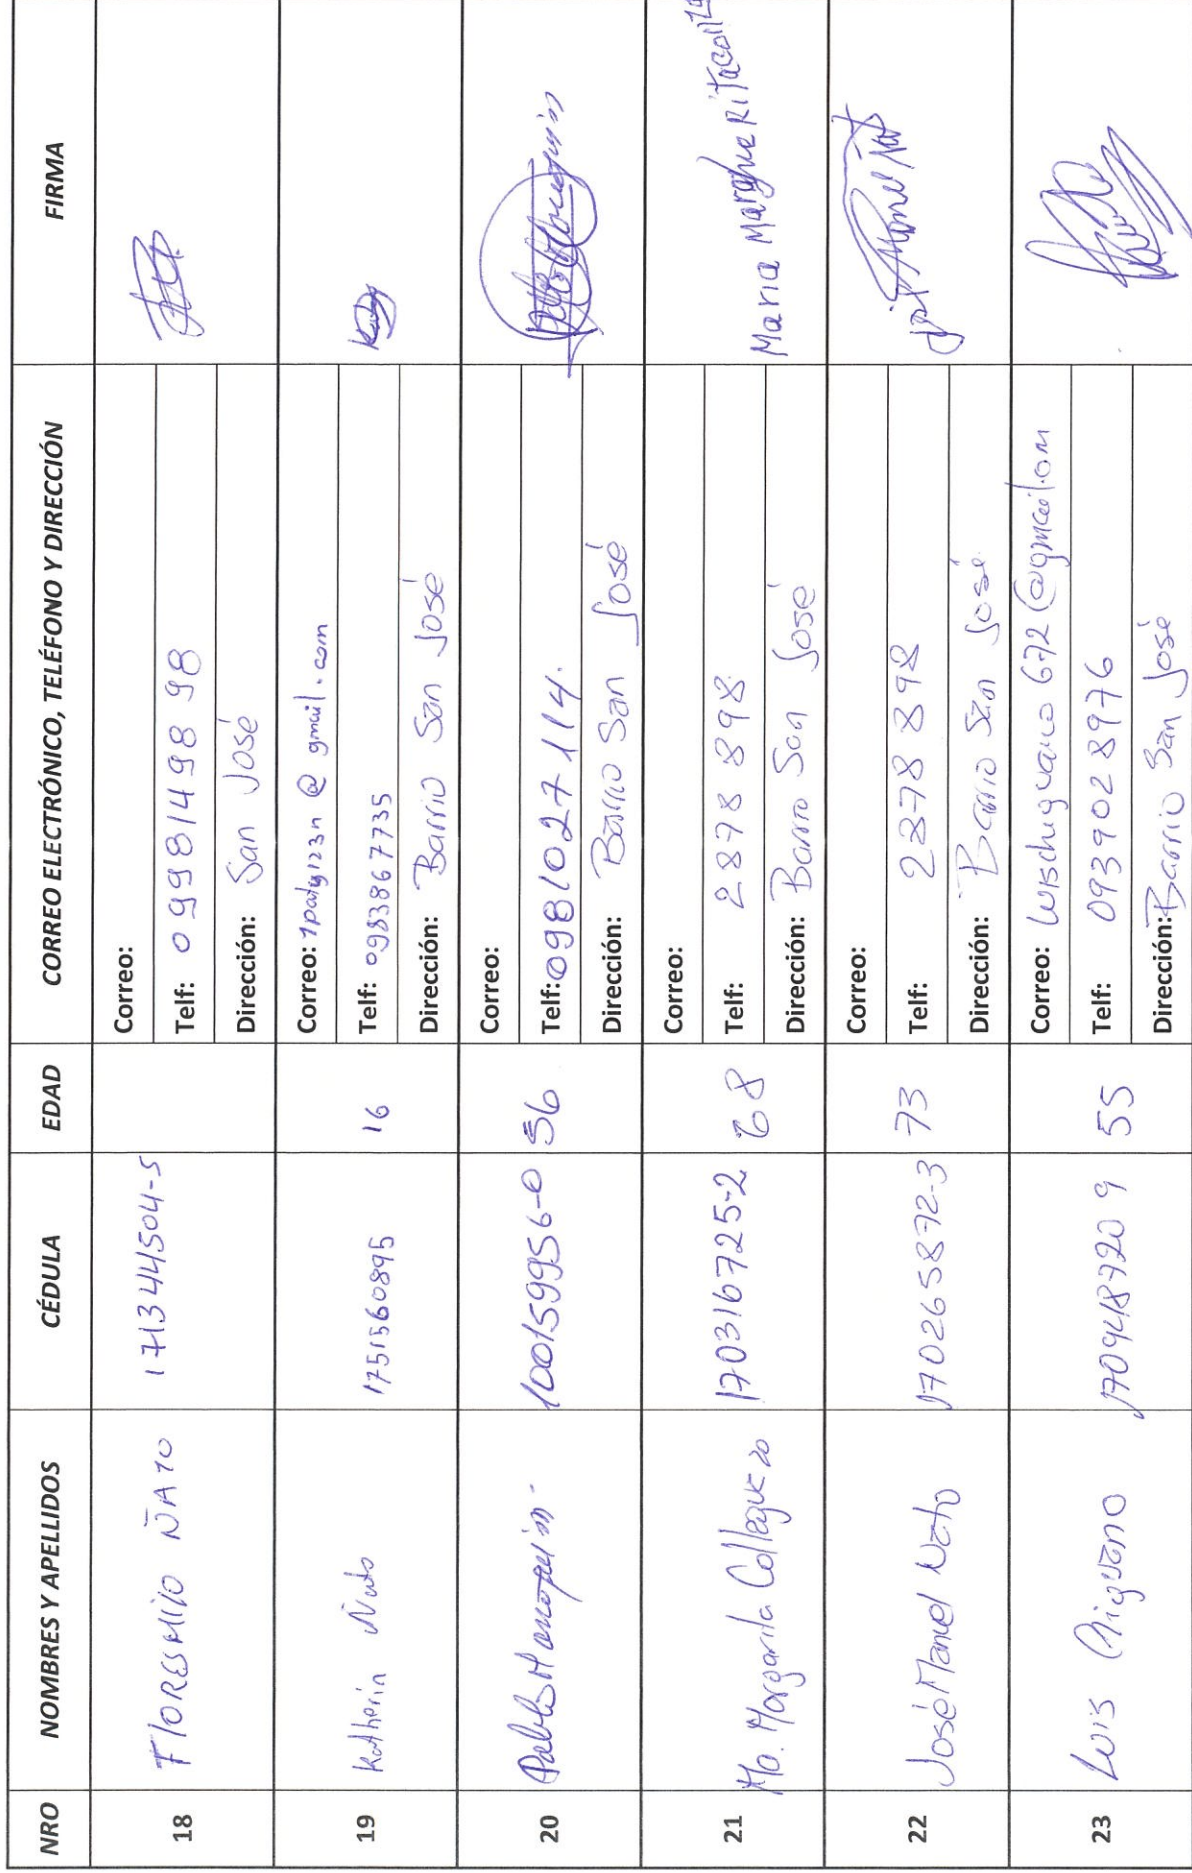 NRO NOMBRES Y APELLIDOS CÉDULA EDAD CORREO ELECTRÓNICO, TELÉFONO Y DIRECCIÓN FIRMA
18 FLORESMILO ÑATO 171344504-5
Correo:
Telf: 0998149898
Dirección: San José
19 Katherin Ñato 1751560895 16
Correo: 1paty123n@gmail.com
Telf: 0983867735
Dirección: Barrio San José
20 Pablo 100159956-0 56
Correo:
Telf: 0981027114.
Dirección: Barrio San José
21 Ma. Margarita Collaguazo 170316725-2 68
Correo:
Telf: 2878898
Dirección: Barro San José
Maria Marghe
22 José Manuel Nato 170265872-3 73
Correo:
Telf: 2378898
Dirección: Barrio San José
José Manuel Nato
23 Luis 1709487209 55
Correo: luischiguano672@gmail.om
Telf: 0939028976
Dirección: Barrio San José